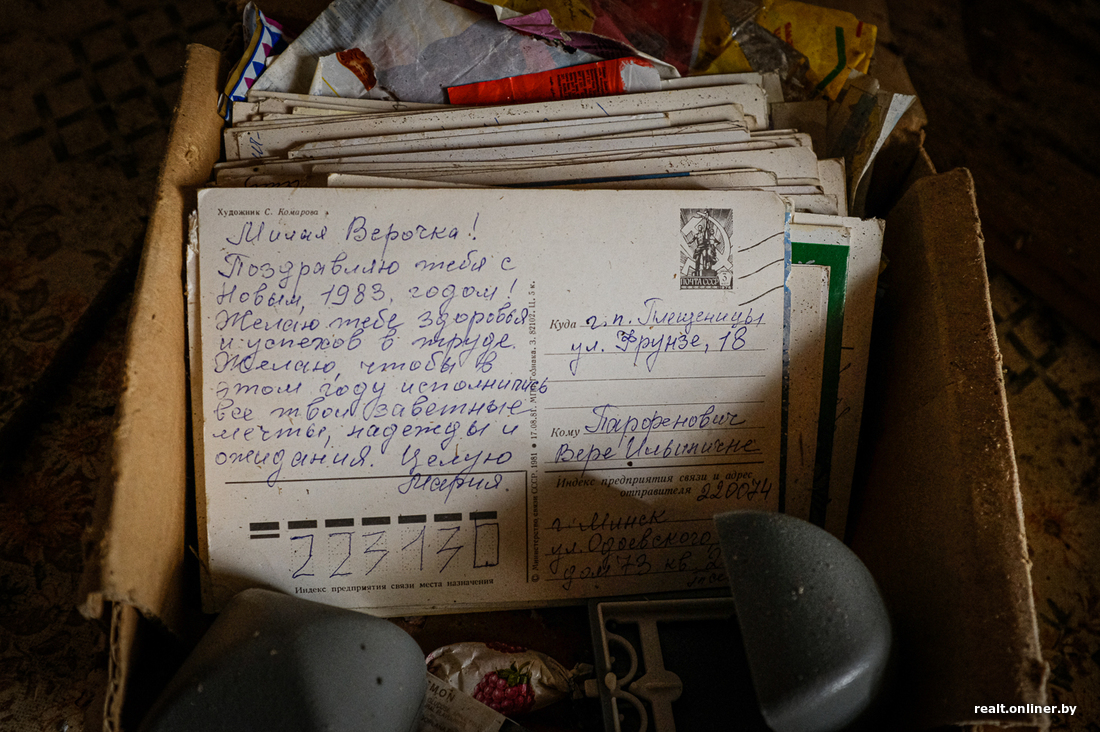 Художник С. Комарова
Милая Верочка!
Поздравляю тебя с
Новым, 1983, годом!
Желаю тебе здоровья
и успехов в труде.
Желаю, чтобы в
этом году исполнились
все твои заветные
мечты, надежды и
ожидания. Целую
Мария.
223130
Индекс предприятия связи места назначения
© Министерство связи СССР, 1981 ● 17.08.81. МПФГ
ПОЧТА СССР 3
Куда г.п. Плещеницы
ул. Фрунзе, 18
Кому Парфенович
Вере Ильиничне
Индекс предприятия связи и адрес
отправителя 220074
г. Минск
ул. Одоевского
дом 73 кв.
realt.onliner.by